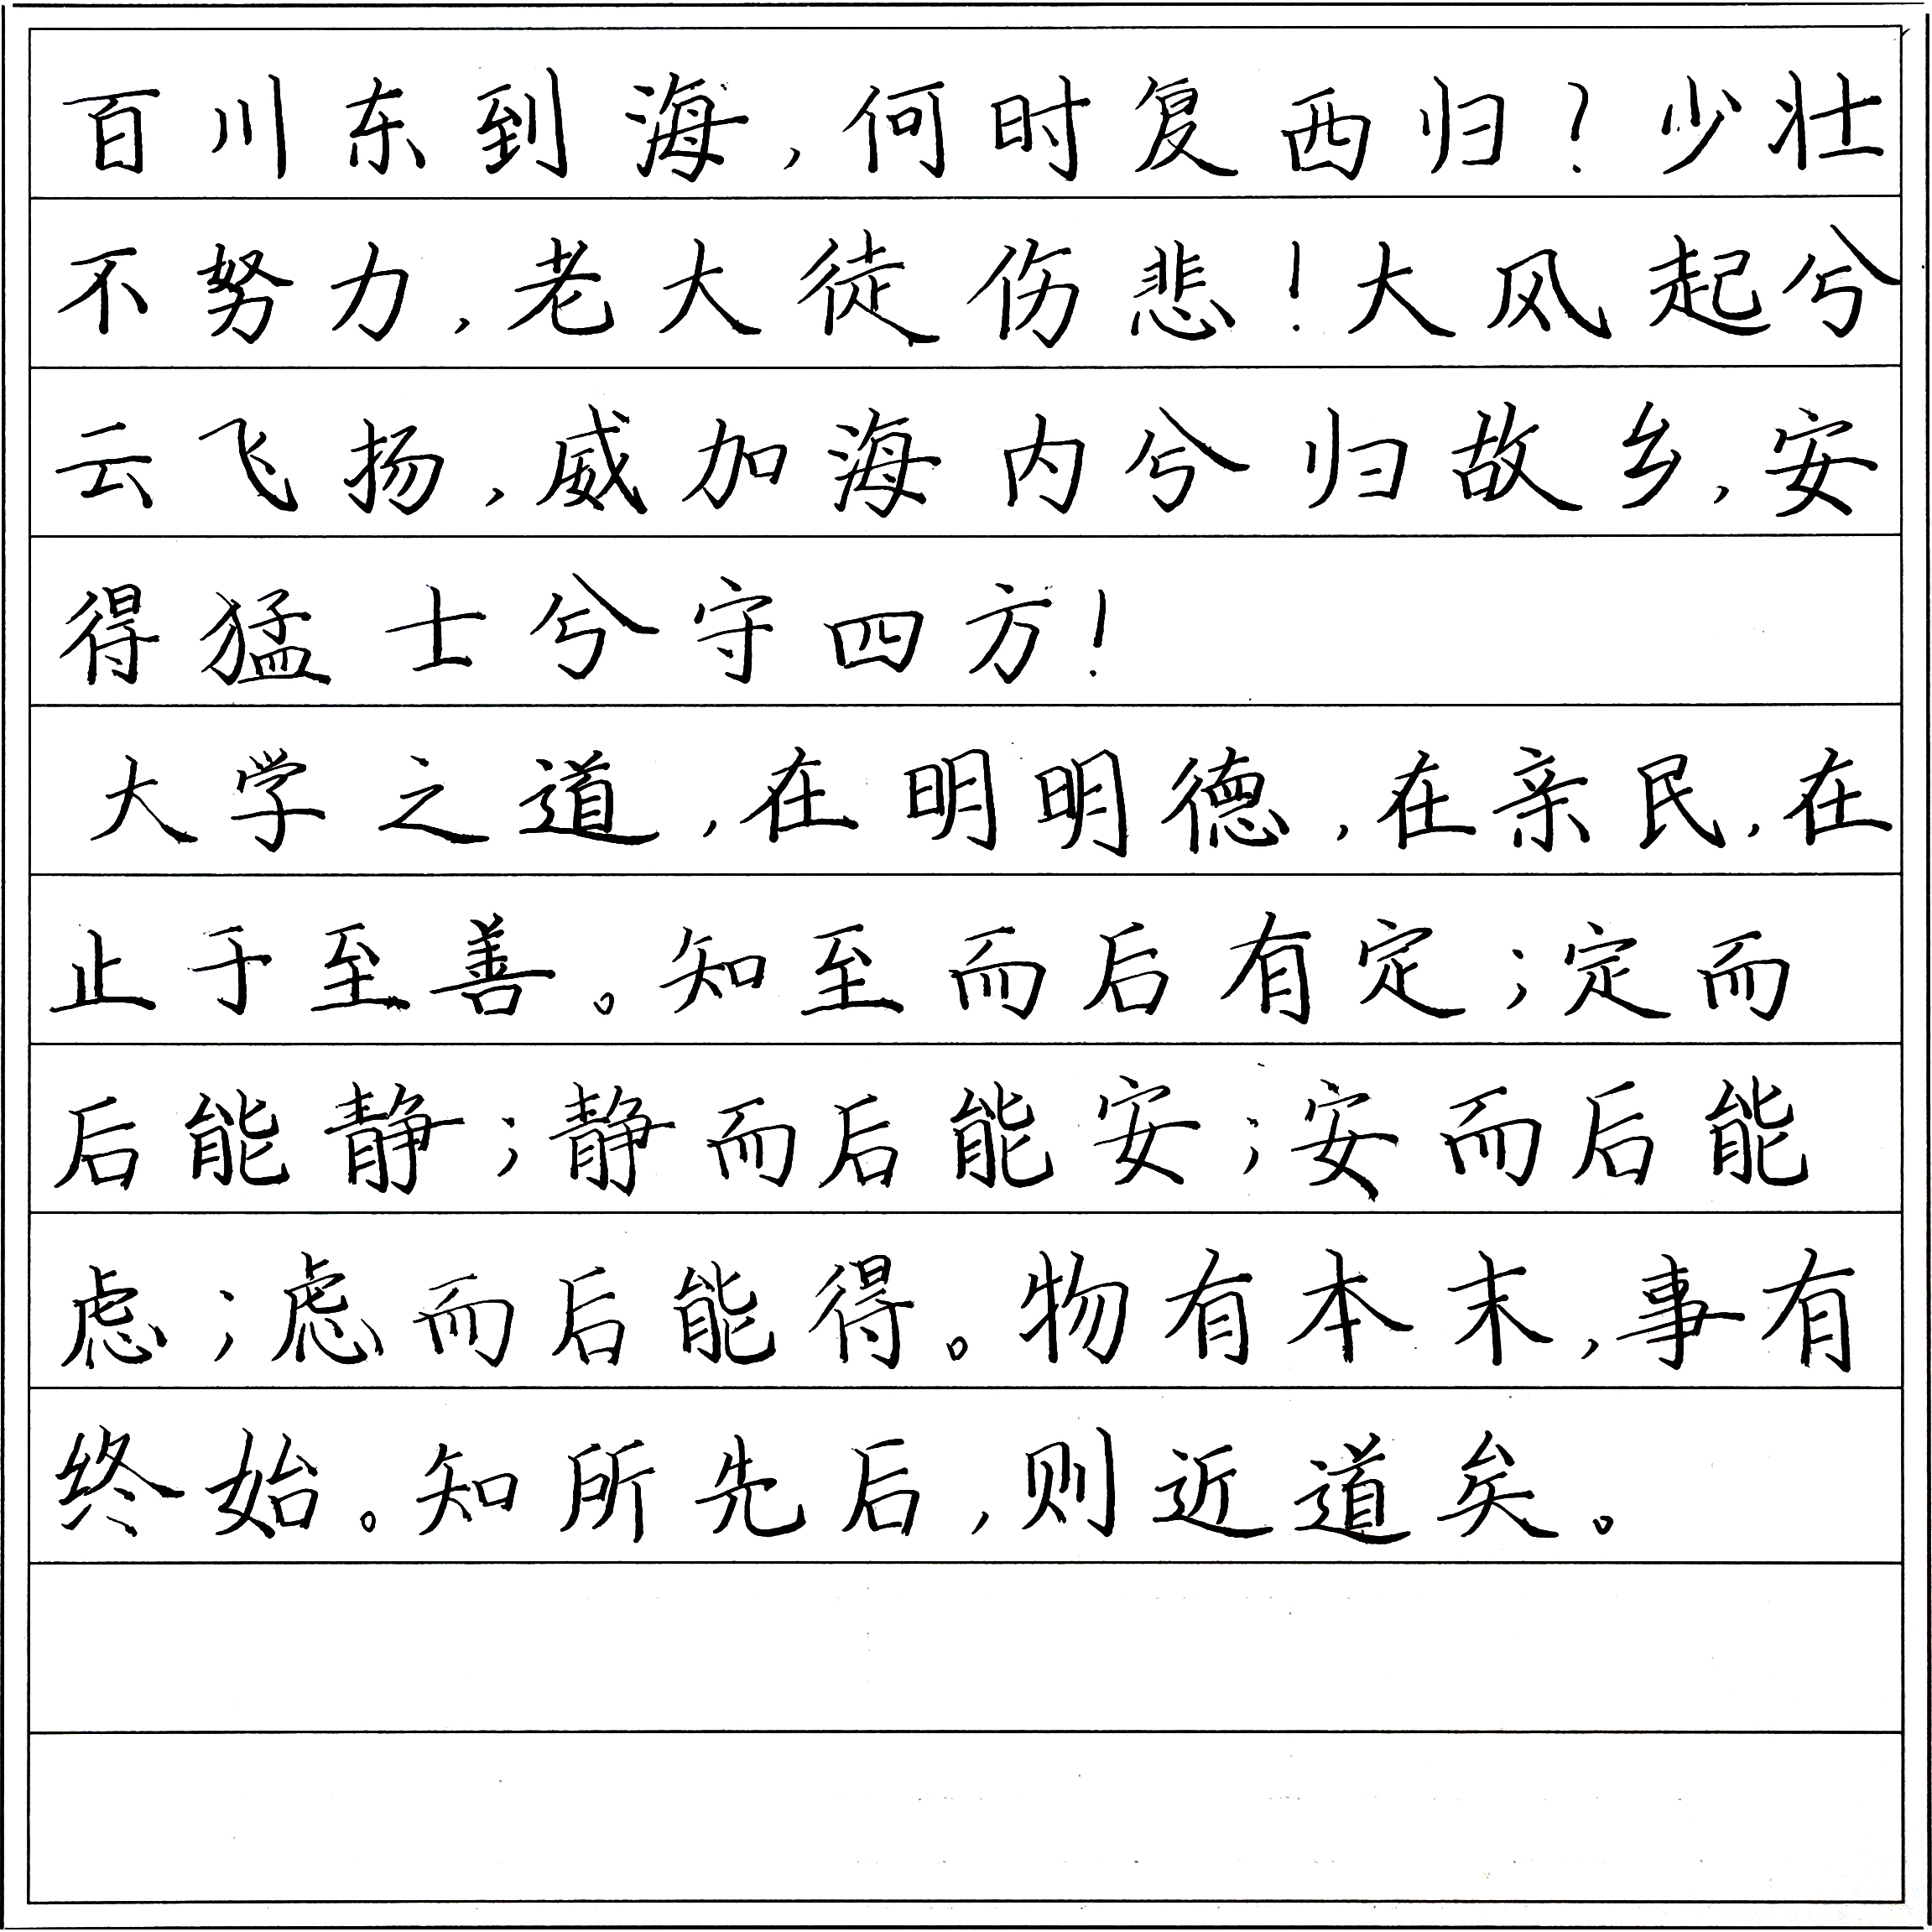 百川东到海，何时复西归？少壮
不努力，老大徒伤悲！大风起兮
云飞扬，威加海内兮归故乡，安
得猛士兮守四方！
大学之道，在明明德，在亲民，在
止于至善。知至而后有定；定而
后能静；静而后能安；安而后能
虑；虑而后能得。物有本末，事有
终始。知所先后，则近道矣。